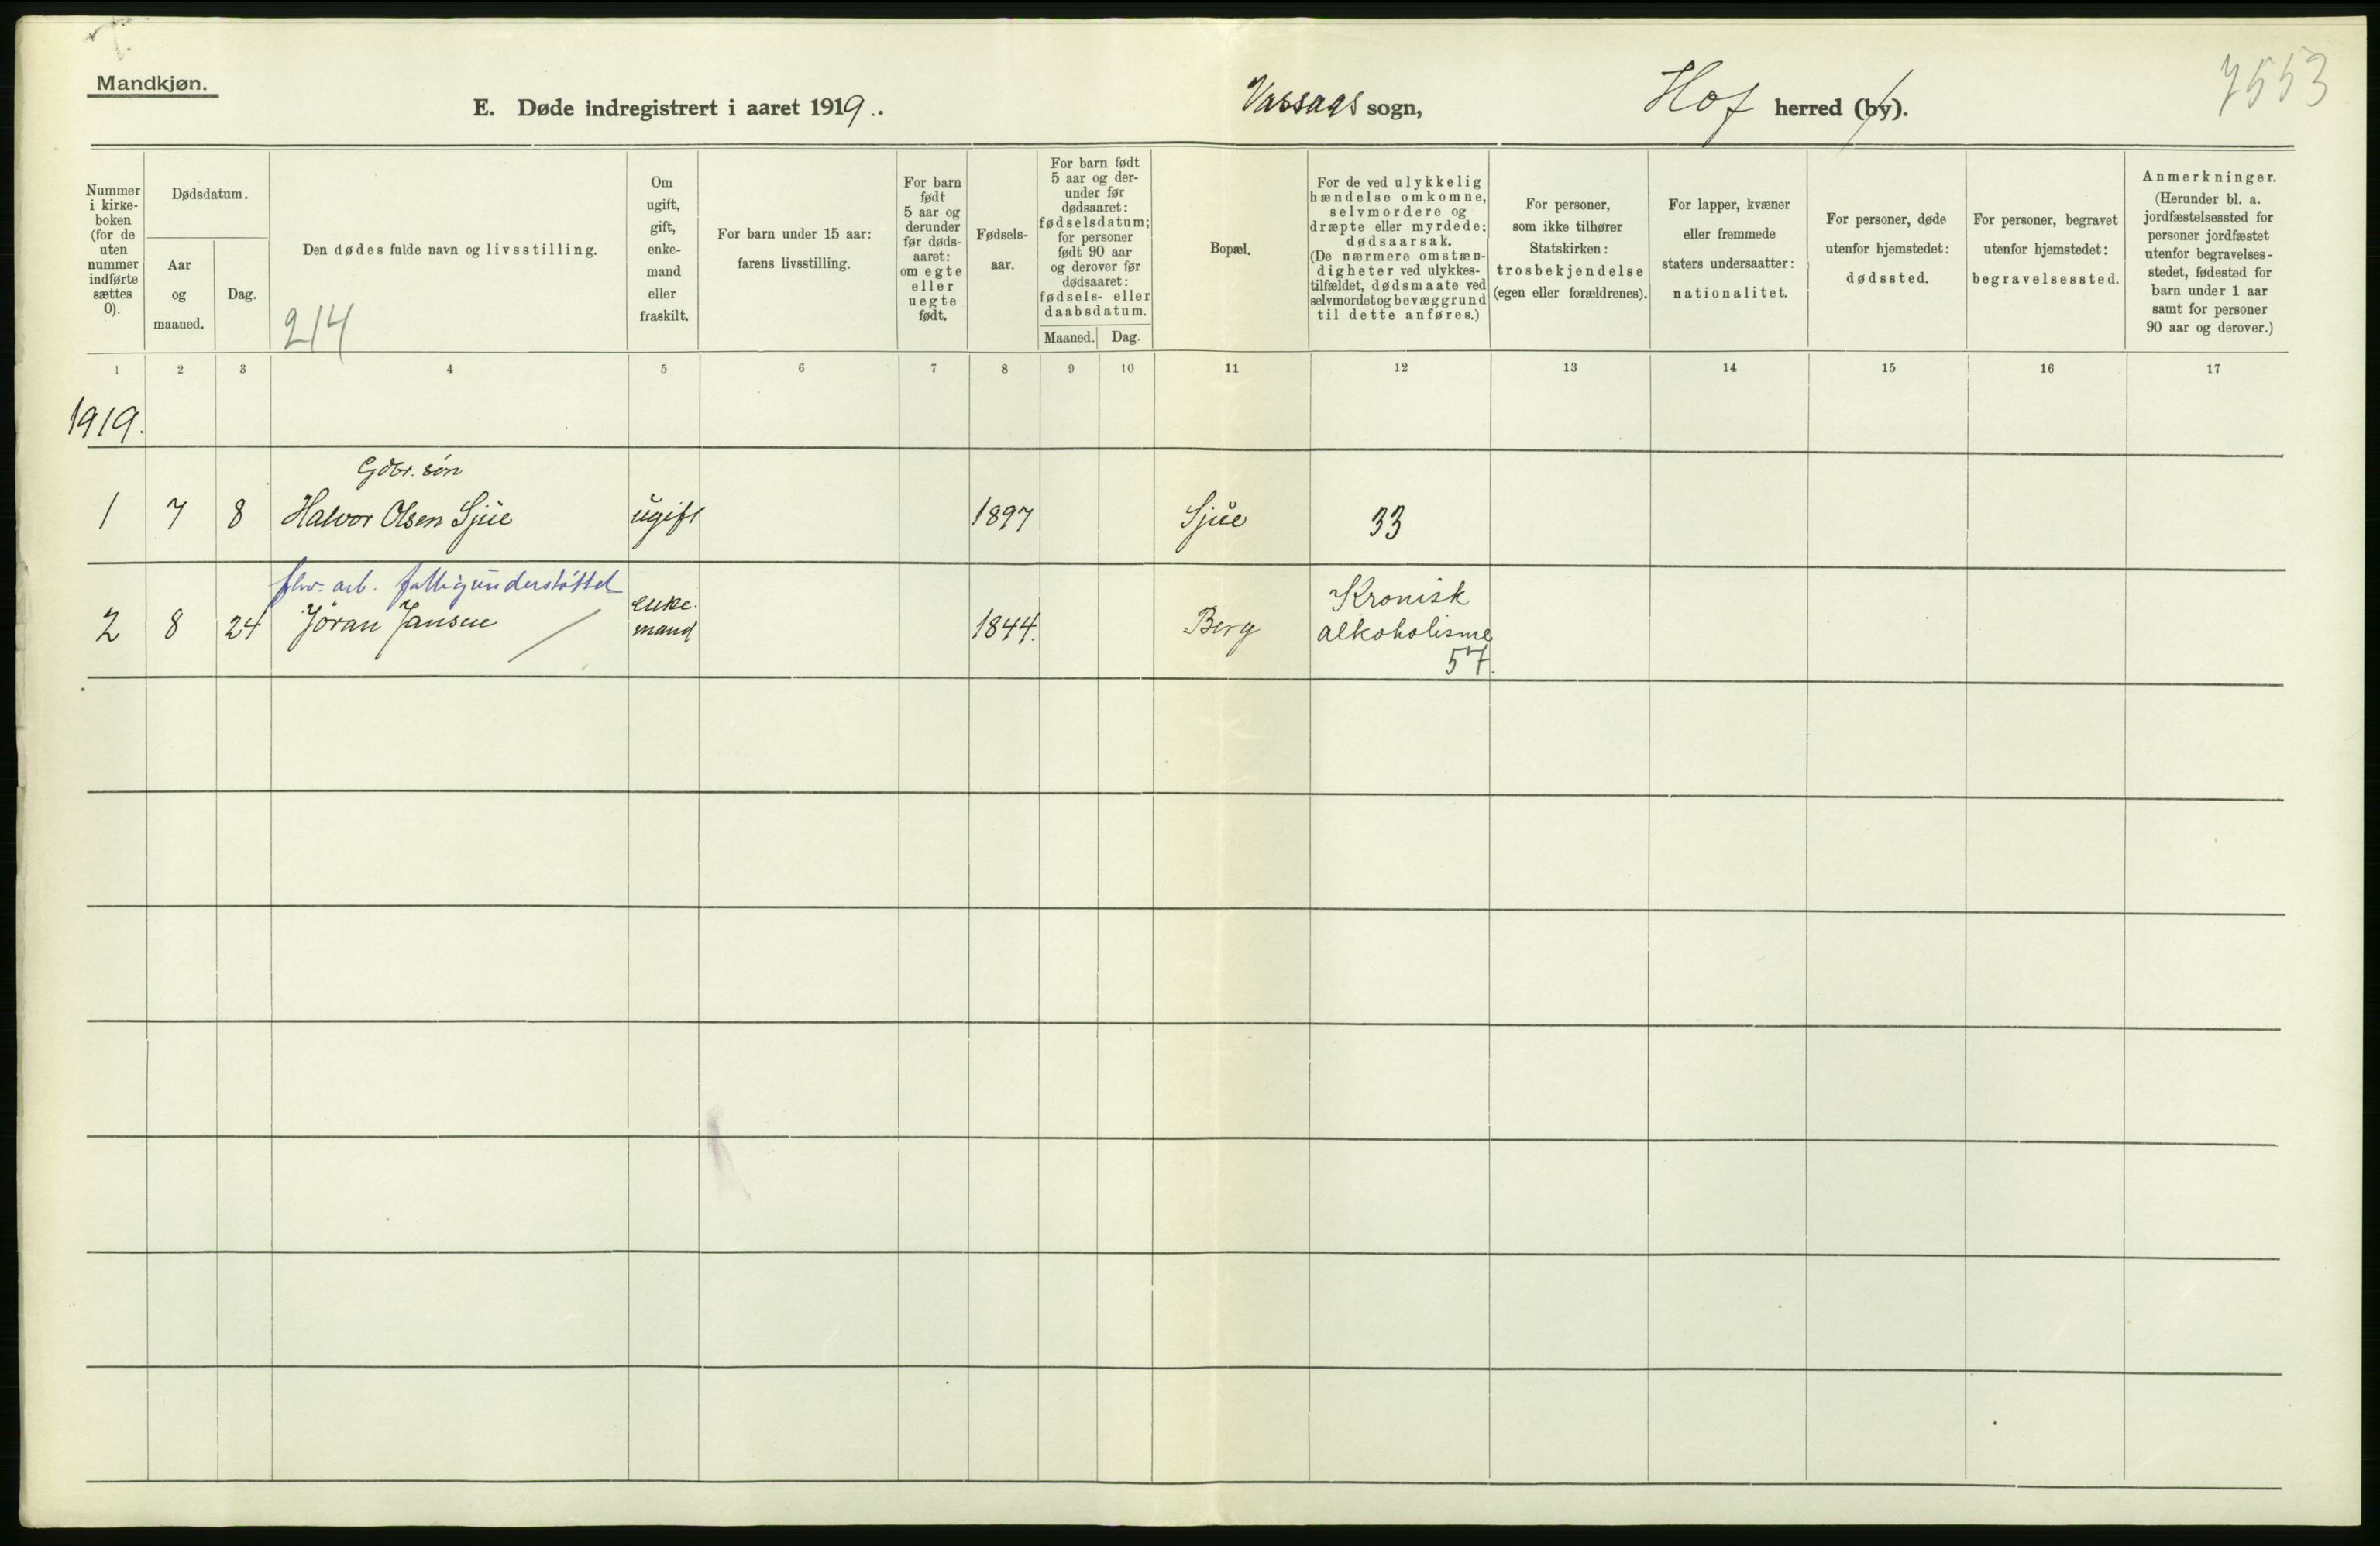 Mandkjøn.
E. Døde indregistrert i aaret 1919.
Vassaas sogn,
Hof herred (by).
7553
Nummer i kirke-boken (for de uten nummer indførte sættes 0).
Dødsdatum.
Aar og maaned.
Dag.
Den dødes fulde navn og livsstilling.
214
Om ugift, gift, enke-mand eller fraskilt.
For barn under 15 aar: farens livsstilling.
For barn født 5 aar og derunder før døds-aaret: om egte eller uegte født.
Fødsels-aar.
For barn født 5 aar og der-under før dødsaaret: fødselsdatum; for personer født 90 aar og derover før dødsaaret: fødsels- eller daabsdatum.
Maaned. Dag.
Bopæl.
For de ved ulykkelig hændelse omkomne, selvmordere og dræpte eller myrdede: dødsaarsak. (De nærmere omstæn-digheter ved ulykkes-tilfældet, dødsmaate ved selvmordet og bevæggrund til dette anføres.)
For personer, som ikke tilhører Statskirken: trosbekjendelse (egen eller forældrenes).
For lapper, kvæner eller fremmede staters undersaatter: nationalitet.
For personer, døde utenfor hjemstedet: dødssted.
For personer, begravet utenfor hjemstedet: begravelsessted.
Anmerkninger. (Herunder bl. a. jordfæstelsessted for personer jordfæstet utenfor begravelses-stedet, fødested for barn under 1 aar samt for personer 90 aar og derover.)
1 2 3 4 5 6 7 8 9 10 11 12 13 14 15 16 17
1919.
Gdbr. søn
1 7 8 Halvor Olsen Sjue ugift 1897 Sjue 33
fhv. arb. fattigunderstøttet
2 8 24 Jöran Jansen enke-mand 1844. Berg Kronisk alkoholisme
57.